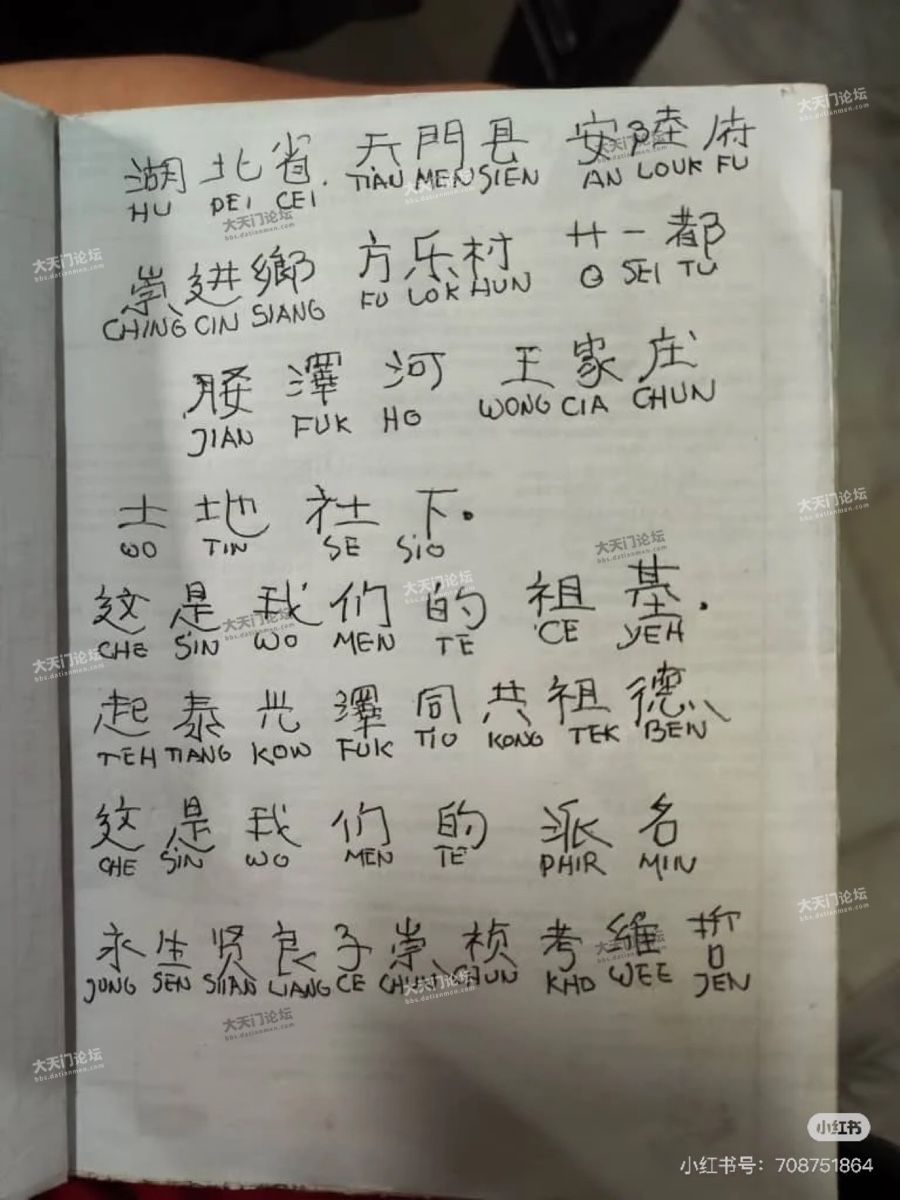 湖北省. 天門县 安陸府
HU PEI CEI TIAU MEN SIEN AN LOUK FU
崇进鄉 方乐村 廿一都
CHING CIN SIANG FU LOK HUN O SEI TU
腰澤河 王家庄
JIAN FUK HO WONG CIA CHUN
土地社下.
WO TIN SE SIO
这是我们的祖基.
CHE SIN WO MEN TE CE YEH
起泰光澤同共祖德
TEH TIANG KOW FUK TIO KONG TEK BEN
这是我们的派名
CHE SIN WO MEN TE PHIR MIN
永生贤良子崇桢考維哲
JUNG SEN SIIAN LIANG CE CHUN KHO WEE JEN
大天门论坛
bbs.datianmen.com
小红书
小红书号：708751864